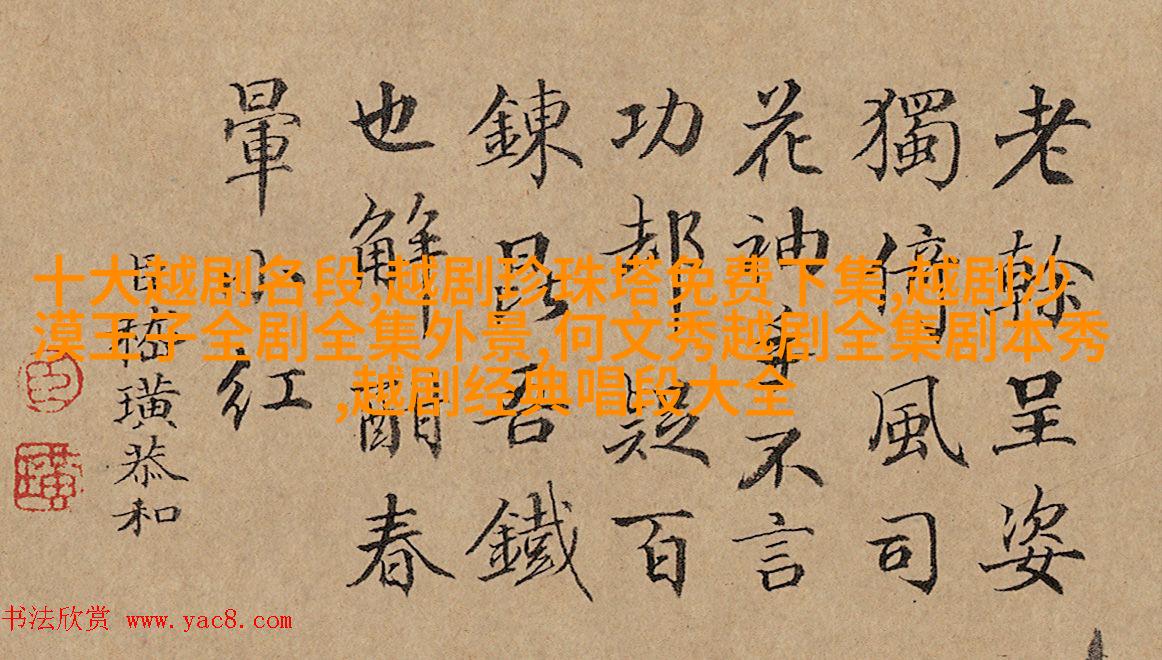 老榦呈姿
獨倚風司
花神不言
功却疑百
鍊昆吾鐵
也解酣春
暈小紅
臣嵇璜恭和
臣
璜
十大越剧名段,越剧珍珠塔免费下集,越剧沙
漠王子全剧全集外景,何文秀越剧全集剧本秀
,越剧经典唱段大全
书法欣赏 www.yac8.com